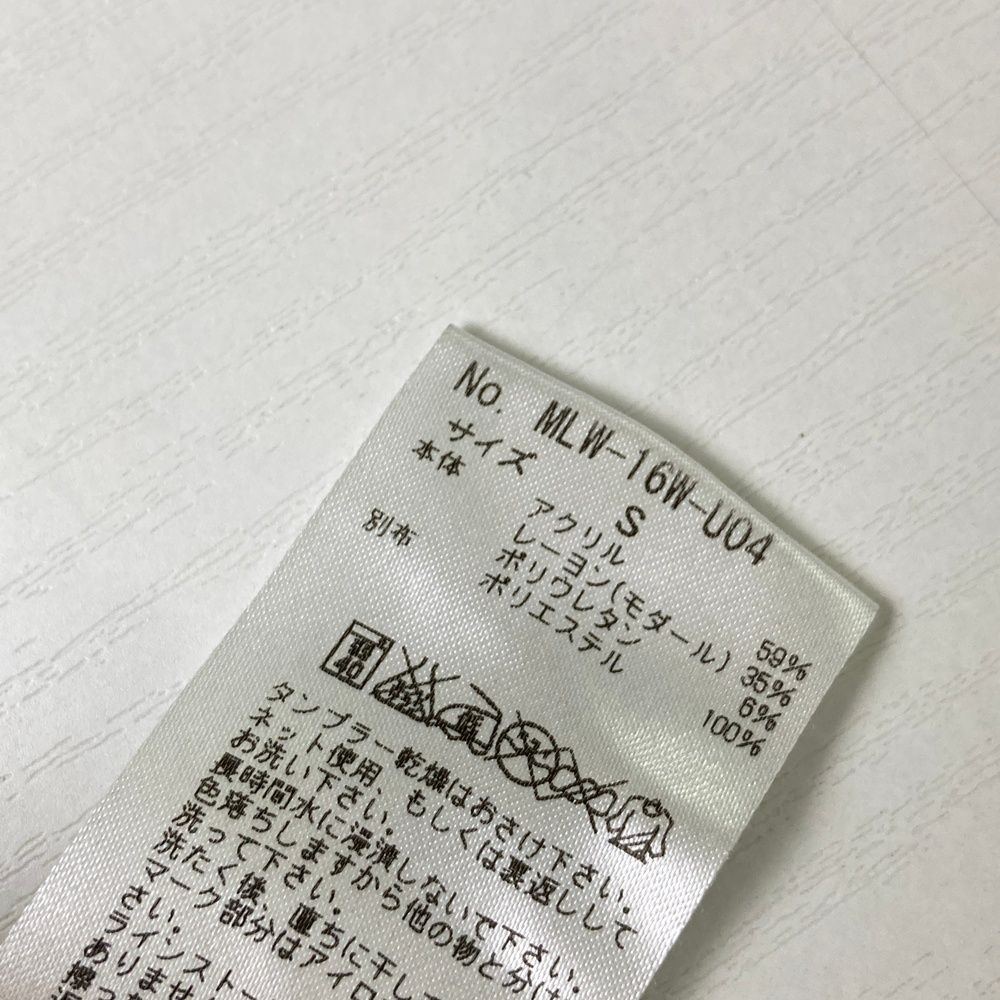 No. MLW-16W-U04
サイズ S
本体 アクリル 59%
レーヨン(モダール) 35%
ポリウレタン 6%
別布 ポリエステル 100%
40
タンブラー乾燥はおさけ下さい.
ネット使用、もしくは裏返しして
お洗い下さい.
長時間水に浸漬しないで下さい.
色落ちしますから他の物と分け
洗って下さい.
洗たく後、直ちに干して
マーク部分はアイロ
さい.
ラインスト
ありませ
擦っ